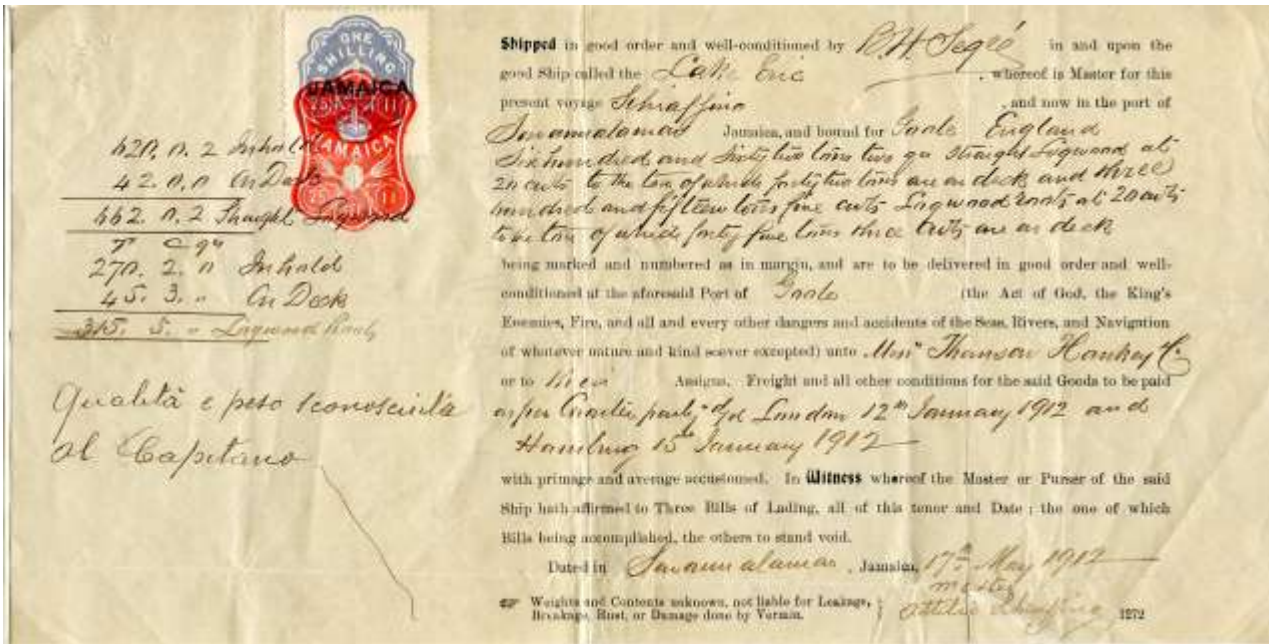 ONE
SHILLING
JAMAICA
25 11
JAMAICA
25 11
620. 0. 2 Inhold
42. 0. 0 On Deck
662. 0. 2 Straight Logwood
270. 2. 0 Inhold
45. 3. " On Deck
315. 5. " Logwood Roots
Qualità e peso sconosciuta
al Capitano
Shipped in good order and well-conditioned by B H Segré in and upon the
good Ship called the Lake Erie , whereof is Master for this
present voyage Schiaffino , and now in the port of
Savannalamar Jamaica, and bound for Goole England
Six hundred and sixty two tons two qrs straight Logwood at
20 cwts to the ton of which forty two tons are on deck and three
hundred and fifteen tons five cwts Logwood roots at 20 cwts
to the ton of which forty five tons three cwts are on deck
being marked and numbered as in margin, and are to be delivered in good order and well-
conditioned at the aforesaid Port of Goole (the Act of God, the King's
Enemies, Fire, and all and every other dangers and accidents of the Seas, Rivers, and Navigation
of whatever nature and kind soever excepted) unto Messrs Thomson Hankey & Co
or to their Assigns, Freight and all other conditions for the said Goods to be paid
as per Charter party dd London 12th January 1912 and
Hamburg 15th January 1912
with primage and average accustomed. In Witness whereof the Master or Purser of the said
Ship hath affirmed to Three Bills of Lading, all of this tenor and Date ; the one of which
Bills being accomplished, the others to stand void.
Dated in Savannalamar , Jamaica, 17th May 1912
master
☞ Weights and Contents unknown, not liable for Leakage,
Breakage, Rust, or Damage done by Vermin.
Attilio Schiaffino
1272